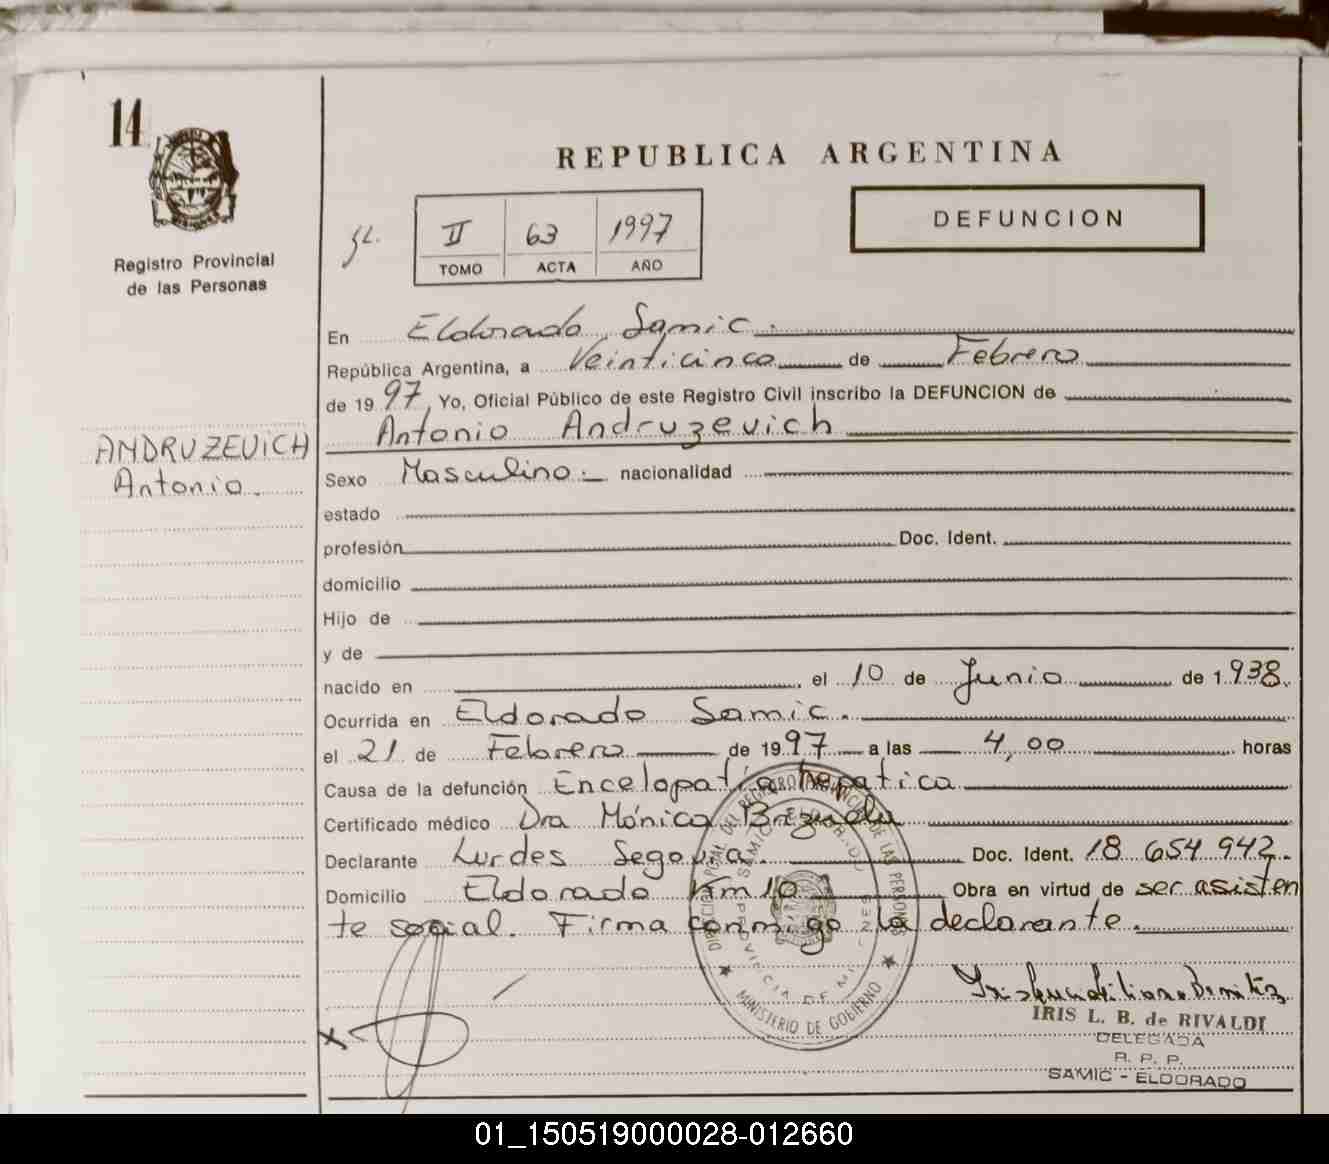 14
Registro Provincial
de las Personas
REPUBLICA ARGENTINA
DEFUNCION
II 63 1997
TOMO ACTA AÑO
En Eldorado, Samic.
República Argentina, a Veinticinco de Febrero
de 1997, Yo, Oficial Público de este Registro Civil inscribo la DEFUNCION de
Antonio Andruzevich
ANDRUZEVICH
Antonio.
Sexo Masculino. nacionalidad
estado
profesión Doc. Ident.
domicilio
Hijo de
y de
nacido en el 10 de Junio de 1.938.
Ocurrida en Eldorado Samic.
el 21 de Febrero de 1997 a las 4,00 horas
Causa de la defunción Encelopatía hepatica
Certificado médico Dra Mónica Brizuela
Declarante Lurdes Segovia. Doc. Ident. 18 654 942.
Domicilio Eldorado Km 10 Obra en virtud de ser asisten
te social. Firma conmigo la declarante.
DIRECCION PCIAL. DEL REGISTRO PROVINCIAL DE LAS PERSONAS
MINISTERIO DE GOBIERNO
PROVINCIA DE MI
IRIS L. B. de RIVALDI
DELEGADA
R. P. P.
SAMIC - ELDORADO
01_150519000028-012660